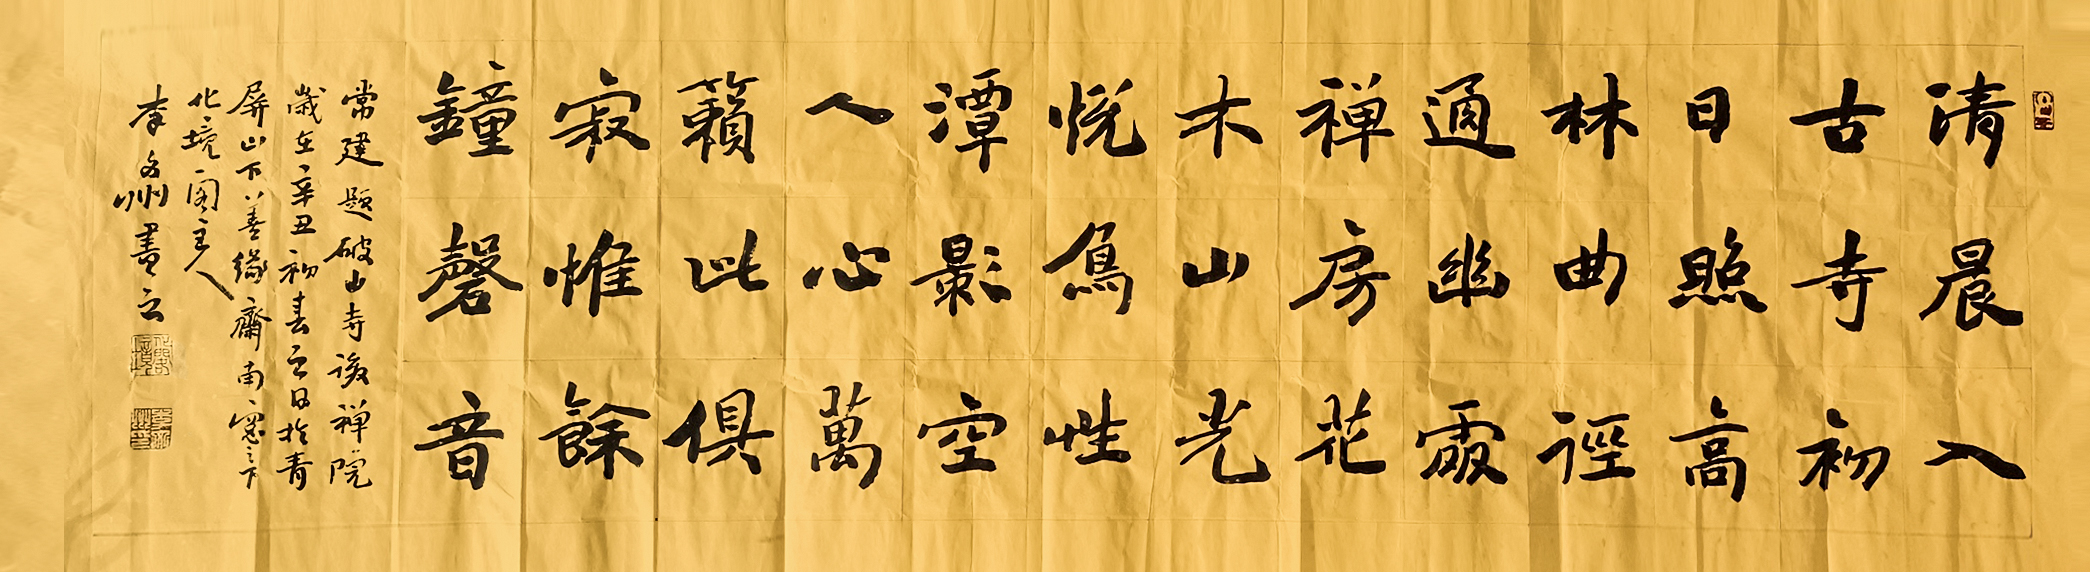 清晨入
古寺初
日照高
林曲徑
通幽處
禅房花
木山光
悦鳥性
潭影空
人心萬
籟此俱
寂惟餘
鐘磬音
常建題破山寺後禅院
歲在辛丑初春之日於青
屏山下善緣齋南窓下
化境閣主人
李州書之